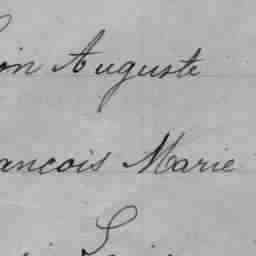 on Auguste
ancois Marie